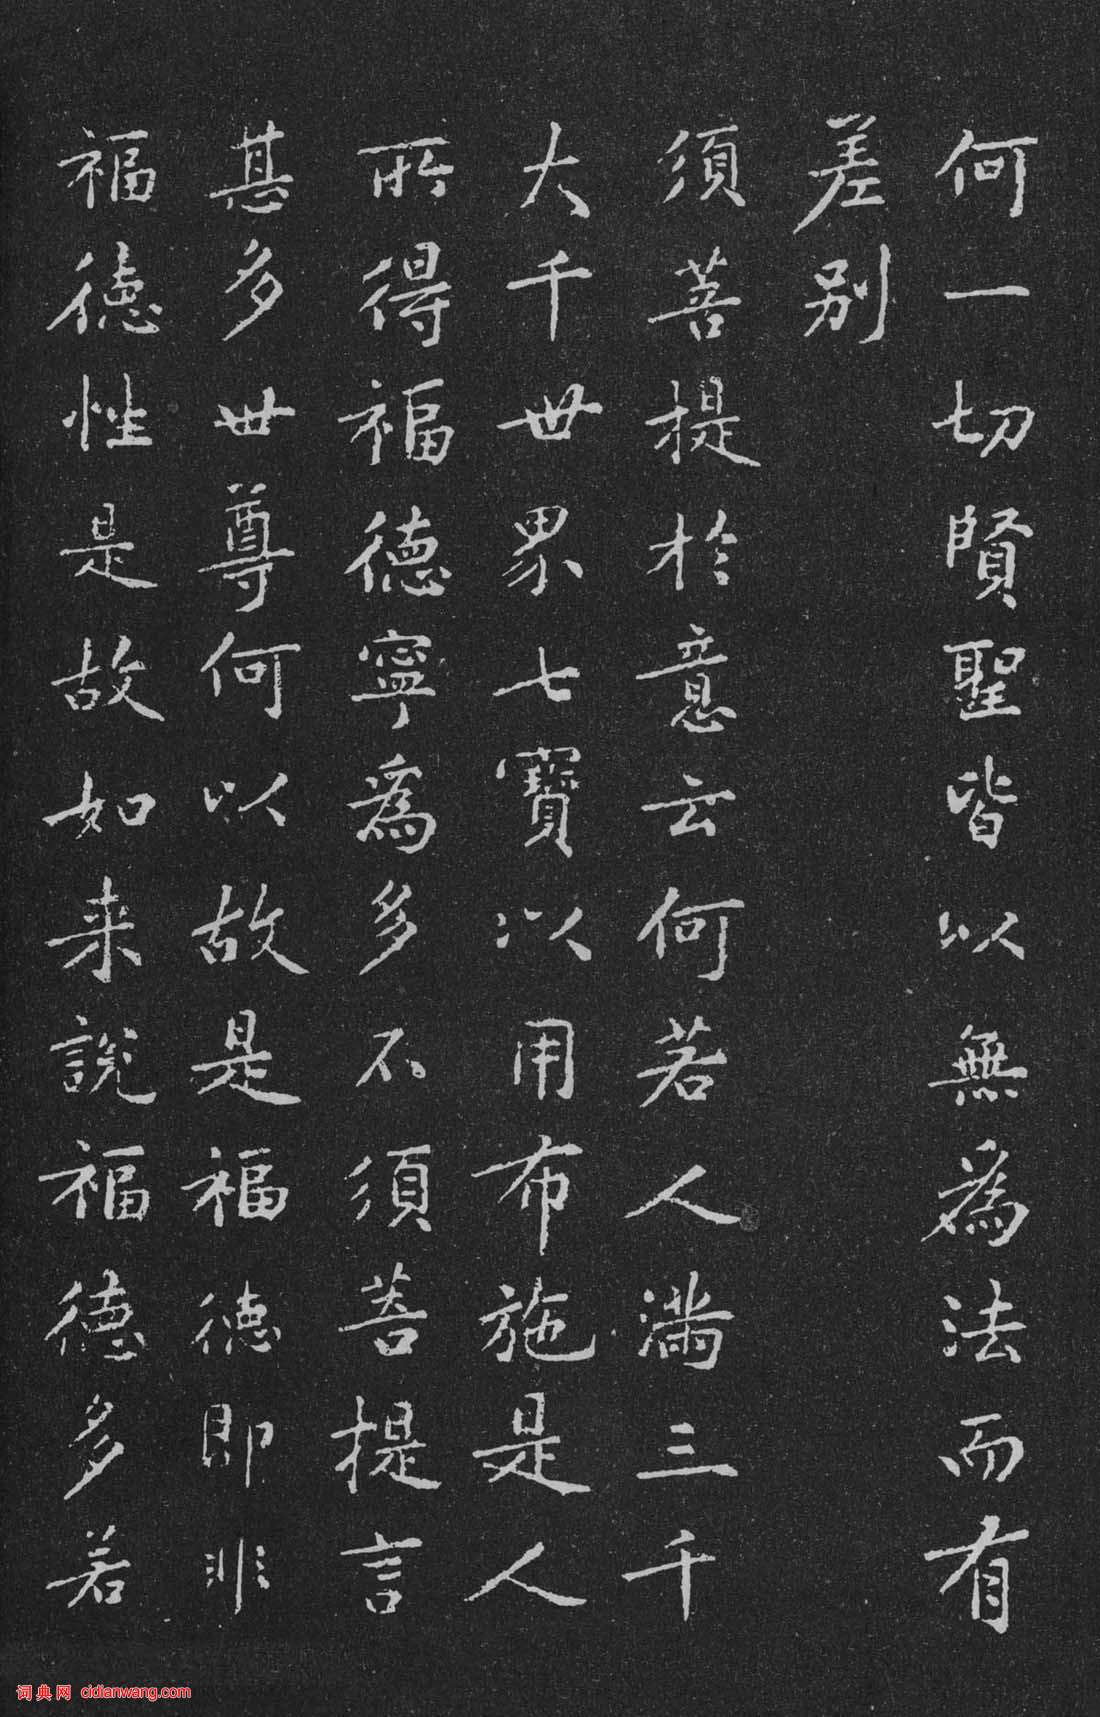 何一切賢聖皆以無為法而有
差别
須菩提於意云何若人滿三千
大千世界七寶以用布施是人
所得福德寧為多不須菩提言
甚多世尊何以故是福德即非
福德性是故如来説福德多若
词典网 cidianwang.com